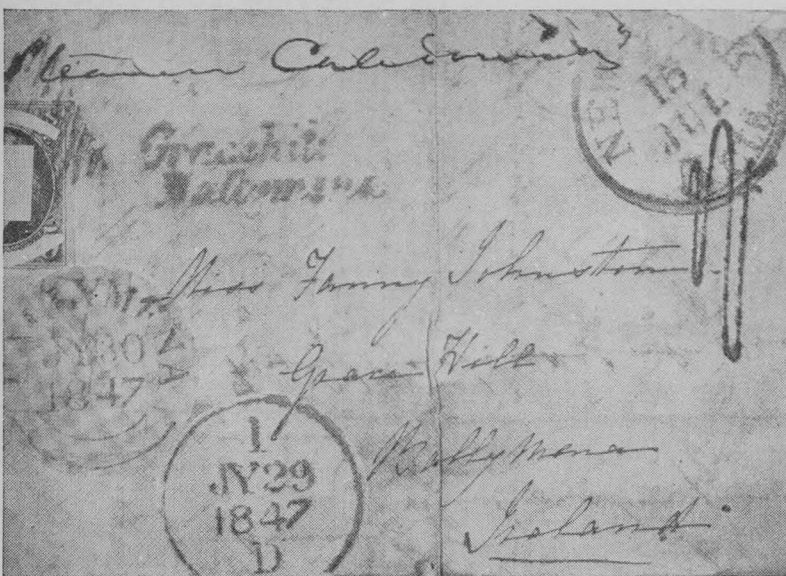 Steamer Caledonia
NEW YORK
15
JUL
Gracehill
Ballymena
Miss Fanny Johnston
Grace Hill
Ballymena
Ireland
JY 30
1847
1
JY 29
1847
D